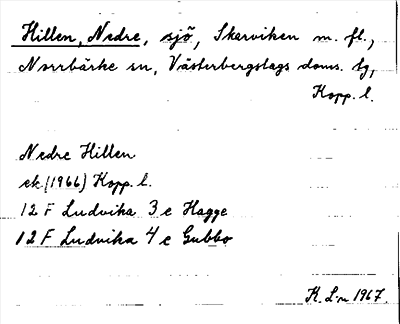 Hillen, Nedre, sjö, Skerviken m. fl.,
Norrbärke sn, Västerbergslags doms. tg,
Kopp. l.
Nedre Hillen
ek. (1966) Kopp. l.
12 F Ludvika 3 e Hagge
12 F Ludvika 4 e Gubbo
K. L:n 1967.